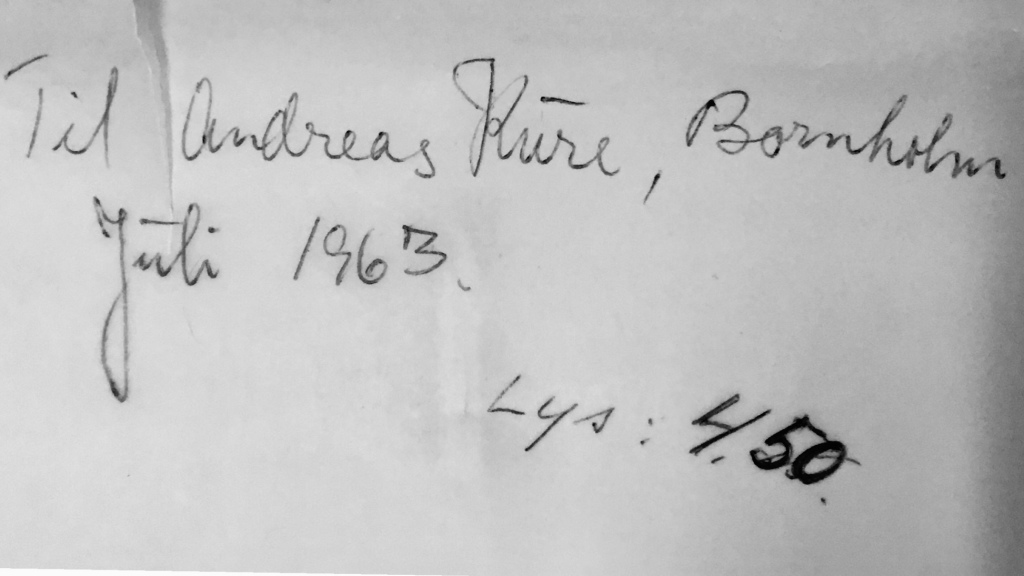 Til Andreas Kure, Bornholm
Juli 1963.
Lys: 4,50.